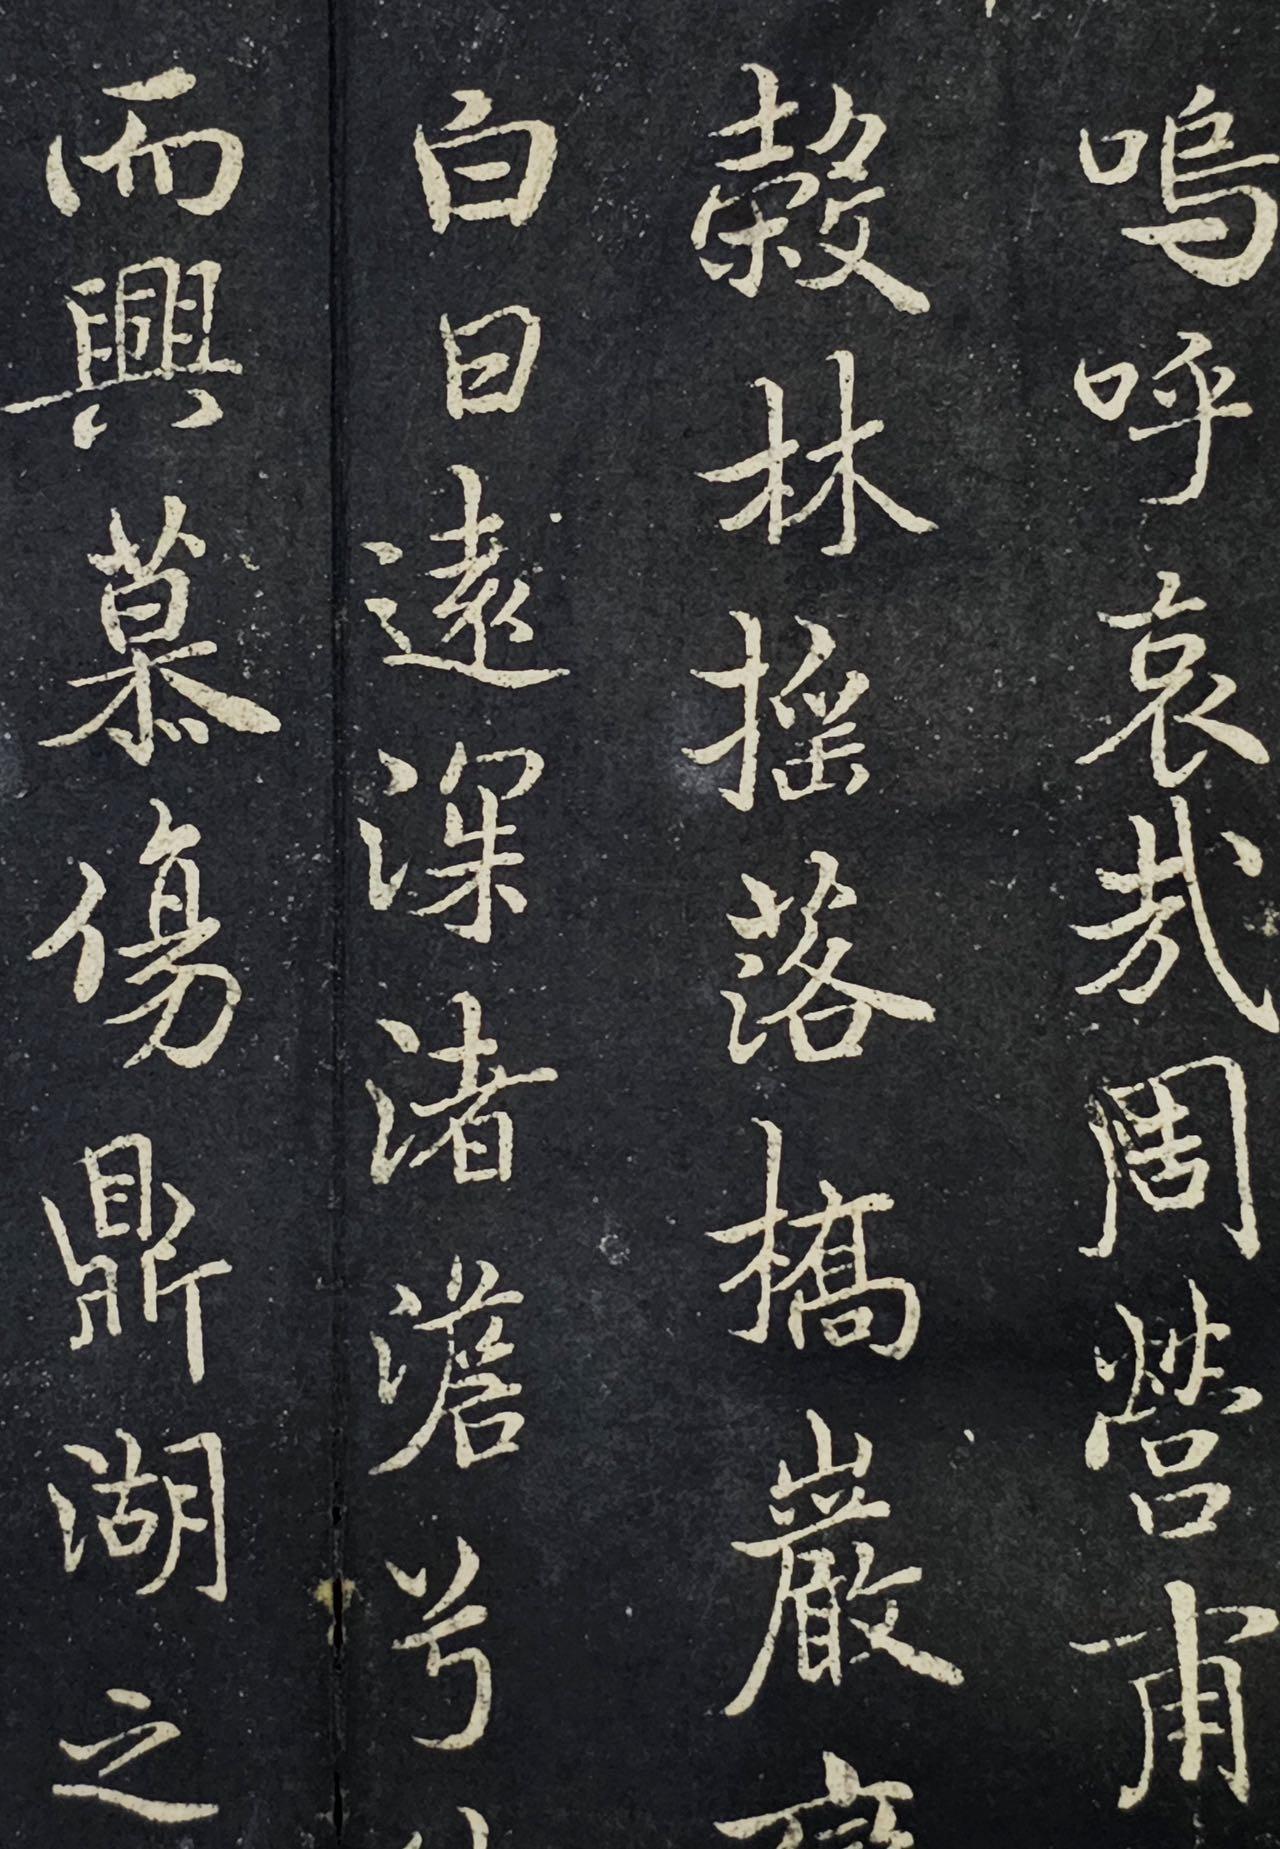 嗚呼哀哉周營甫
榖林摇落橋巖
白日遠深渚澹兮
而興慕傷鼎湖之